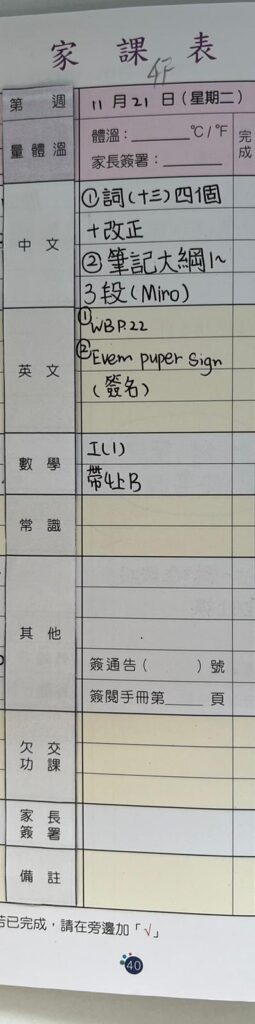 家課表
4F
第 週 11月21日(星期二)
量體溫 體溫:______°C/°F 完成
家長簽署:______
中文 ①詞(十三)四個
+改正
②筆記大綱1~
3段(Miro)
英文 ①WBP.22
②Evem puper sign
(簽名)
數學 I(1)
帶4上B
常識
其他
簽通告( )號
簽閱手冊第____頁
欠交功課
家長簽署
備註
若已完成,請在旁邊加「√」
40